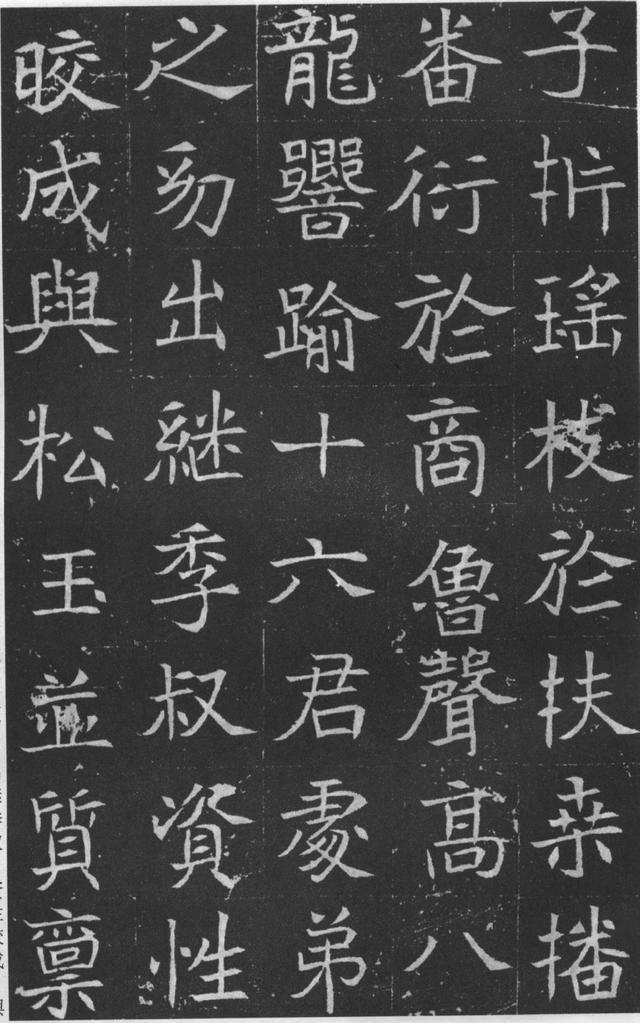 子折瑶枝於扶桒播
畨衍於商魯聲高八
龍響踰十六君處弟
之㓜出継季叔資性
晈成與松玉並質禀